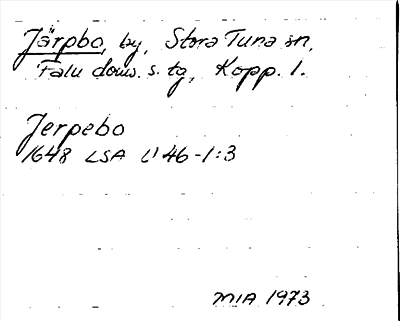 Järpbo, by, Stora Tuna sn,
Falu doms. s. tg, Kopp. l.
Jerpebo
1648 LSA U 46-1:3
MIA 1973